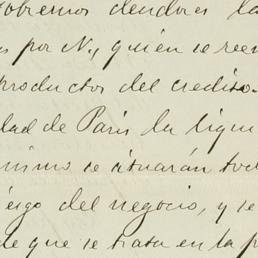 obremos deudores la
s por N., quien se reem
productos del credito.
dad de Paris la liqu
mismo se situarán tod
iesgo del negocio, y se
de que se trata en la p